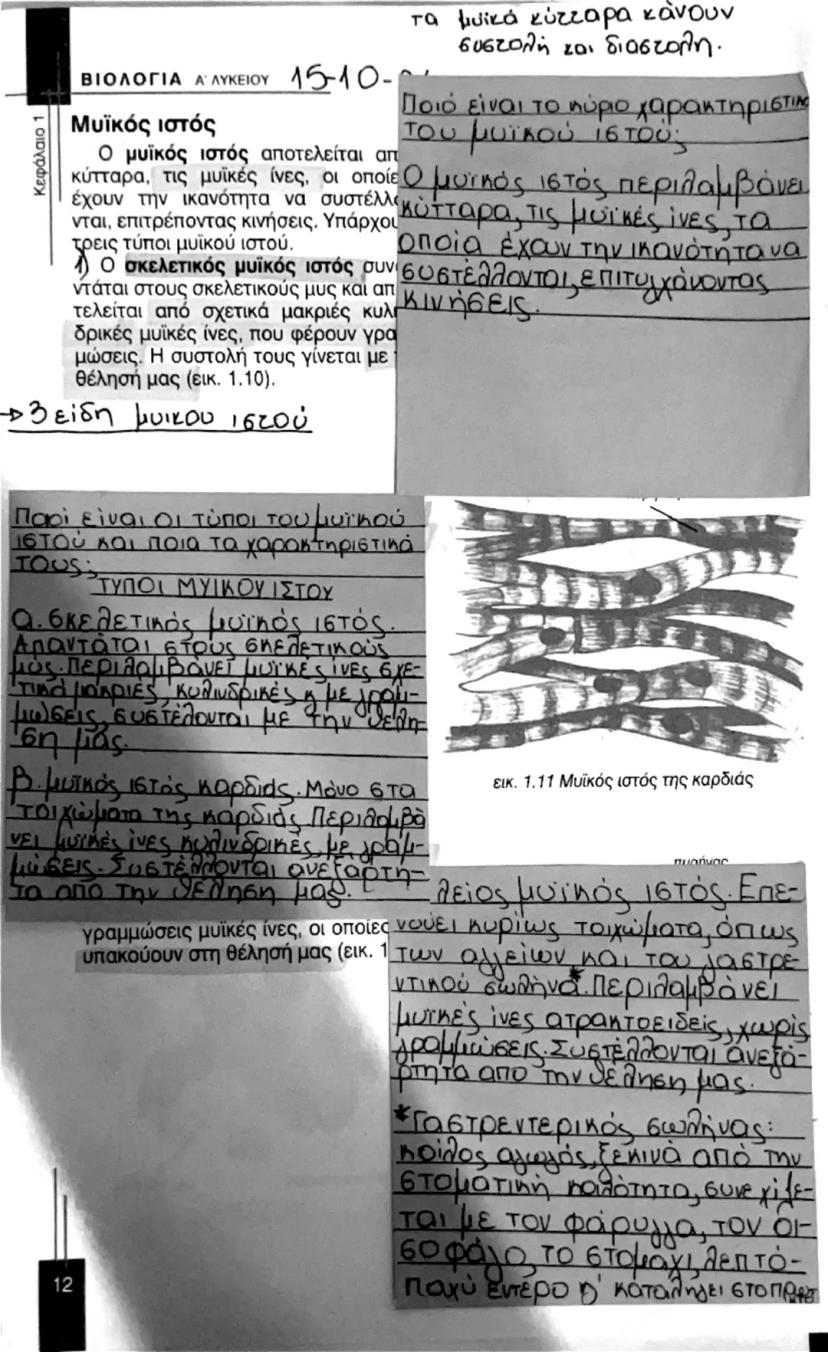 τα μυϊκά κύτταρα κάνουν
συστολή και διαστολη.
ΒΙΟΛΟΓΙΑ Α΄ ΛΥΚΕΙΟΥ 15-10-
Κεφάλαιο 1
Μυϊκός ιστός
Ο μυϊκός ιστός αποτελείται απ
κύτταρα, τις μυϊκές ίνες, οι οποίε
έχουν την ικανότητα να συστέλλο
νται, επιτρέποντας κινήσεις. Υπάρχου
τρεις τύποι μυϊκού ιστού.
1) Ο σκελετικός μυϊκός ιστός συν
ντάται στους σκελετικούς μυς και απ
τελείται από σχετικά μακριές κυλι
δρικές μυϊκές ίνες, που φέρουν γρα
μώσεις. Η συστολή τους γίνεται με
θέλησή μας (εικ. 1.10).
→ 3 είδη μυικου ιστού
Ποιό είναι το κύριο χαρακτηριστικ
του μυϊκού ιστού;
Ο μυϊκός ιστός περιλαμβάνει
κύτταρα, τις μυϊκές ίνες, τα
οποία έχουν την ικανότητα να
συστέλλονται, επιτυγχάνοντας
κινήσεις.
Ποοί είναι οι τύποι του μυϊκού
ιστού και ποια τα χαρακτηριστικά
τους;
ΤΥΠΟΙ ΜΥΙΚΟΥ ΙΣΤΟΥ
α. σκελετικός μυϊκός ιστός.
Απαντάται στους σκελετικούς
μύς. Περιλαμβάνει μυϊκές ίνες σχε-
τικά μακριές, κυλινδρικές κ με γραμ-
μώσεις, συστέλονται με την θέλη-
ση μας.
β. μυϊκός ιστός καρδιάς. Μόνο στα
τοιχώματα της καρδιάς. Περιλαμβά
νει μυϊκές ίνες κυλινδρικές, με γραμ-
μώσεις. Συστέλλονται ανεξαρτη-
τα από την θέληση μας.
εικ. 1.11 Μυϊκός ιστός της καρδιάς
πυρήνας
γραμμώσεις μυϊκές ίνες, οι οποίες
υπακούουν στη θέλησή μας (εικ. 1
λείος μυϊκός ιστός. Επε-
νδύει κυρίως τοιχώματα, όπως
των αγγείων και του γαστρε-
ντικού σωλήνα*. Περιλαμβάνει
μυϊκές ίνες ατρακτοειδείς, χωρίς
γραμμώσεις. Συστέλλονται ανεξά-
ρτητα από την θέληση μας.
*Γαστρεντερικός σωλήνας:
κοίλος αγωγός, ξεκινά από την
στοματική κοιλότητα, συνεχίζε-
ται με τον φάρυγγα, τον οι-
σοφάγο, το στομάχι, λεπτό-
παχύ έντερο κ' καταλήγει στο
12